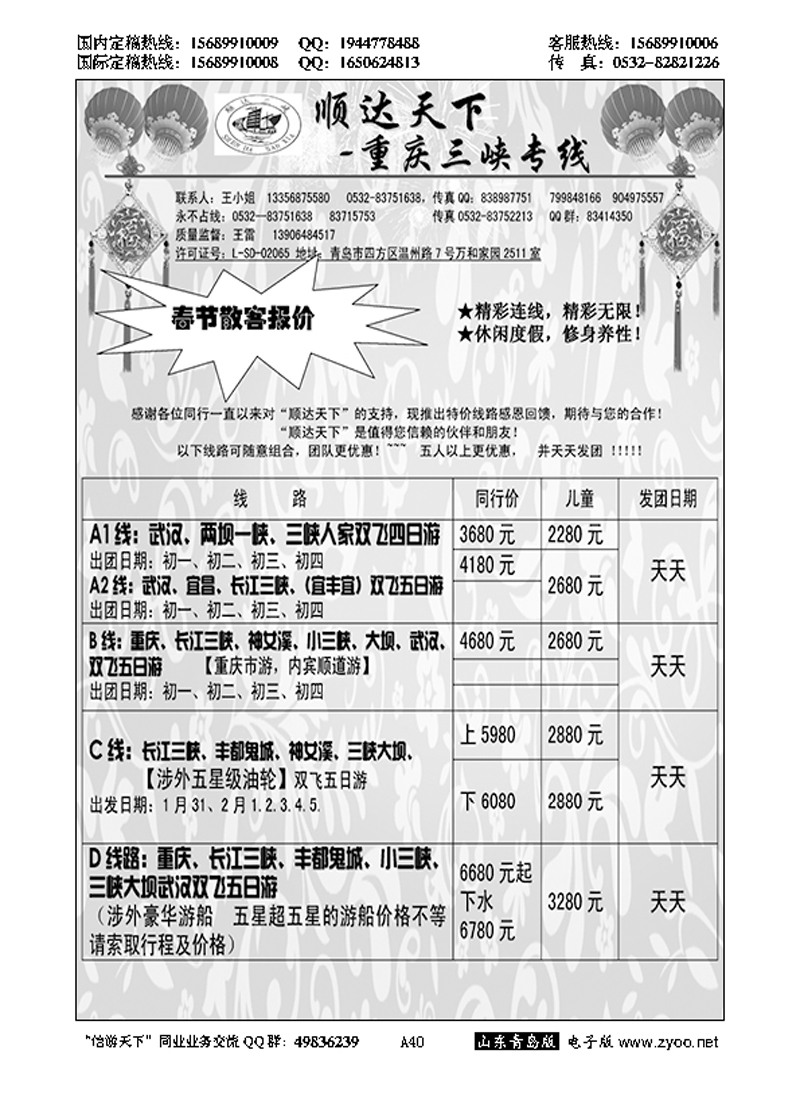 国内定稿热线：15689910009 QQ：1944778488 客服热线：15689910006
国际定稿热线：15689910008 QQ：1650624813 传 真：0532-82821226
顺达天下
-重庆三峡专线
联系人：王小姐 13356875580 0532-83751638，传真QQ：838987751 799848166 904975557
永不占线：0532—83751638 83715753 传真0532-83752213 QQ群：83414350
质量监督：王雷 13906484517
许可证号：L-SD-02065 地址：青岛市四方区温州路7号万和家园2511室
春节散客报价
★精彩连线，精彩无限！
★休闲度假，修身养性！
感谢各位同行一直以来对“顺达天下”的支持，现推出特价线路感恩回馈，期待与您的合作！
“顺达天下”是值得您信赖的伙伴和朋友！
以下线路可随意组合，团队更优惠！~~~ 五人以上更优惠， 并天天发团 !!!!!
线 路 同行价 儿童 发团日期
A1线：武汉、两坝一峡、三峡人家双飞四日游 3680元 2280元 天天
出团日期：初一、初二、初三、初四 4180元
A2线：武汉、宜昌、长江三峡、（宜丰宜）双飞五日游 2680元
出团日期：初一、初二、初三、初四
B线：重庆、长江三峡、神女溪、小三峡、大坝、武汉、 4680元 2680元 天天
双飞五日游 【重庆市游，内宾顺道游】
出团日期：初一、初二、初三、初四
C线：长江三峡、丰都鬼城、神女溪、三峡大坝、 上5980 2880元 天天
【涉外五星级油轮】双飞五日游
出发日期：1月31、2月1.2.3.4.5. 下6080 2880元
D线路：重庆、长江三峡、丰都鬼城、小三峡、 6680元起 3280元 天天
三峡大坝武汉双飞五日游 下水
（涉外豪华游船 五星超五星的游船价格不等 6780元
请索取行程及价格）
“信游天下”同业业务交流QQ群：49836239 A40 山东青岛版 电子版 www.zyoo.net